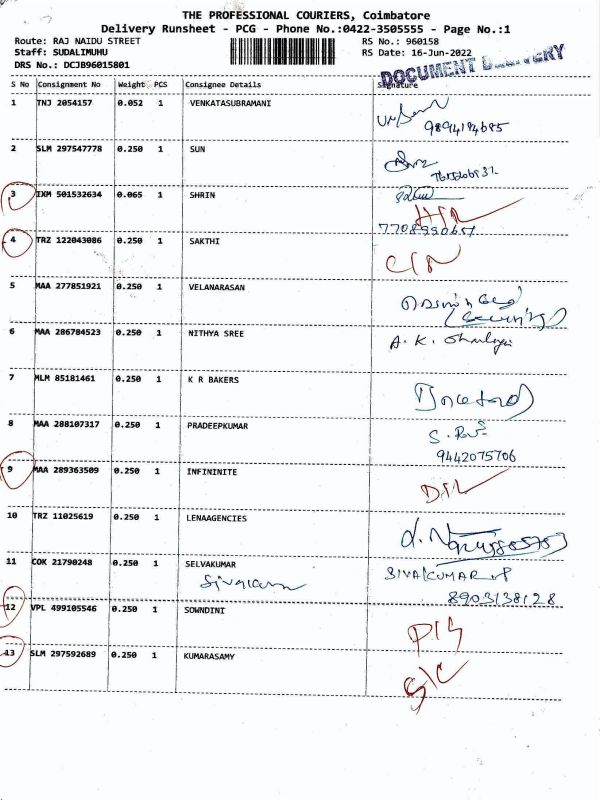 THE PROFESSIONAL COURIERS, Coimbatore
Delivery Runsheet - PCG - Phone No.:0422-3505555 - Page No.:1
Route: RAJ NAIDU STREET RS No.: 960158
Staff: SUDALIMUHU RS Date: 16-Jun-2022
DRS No.: DCJB96015801
DOCUMENT DELIVERY
S No Consignment No Weight PCS Consignee Details Signature
1 TNJ 2054157 0.052 1 VENKATASUBRAMANI
9894194685
2 SLM 297547778 0.250 1 SUN
3 IXM 501532634 0.065 1 SHRIN
7708990651
4 TRZ 122043086 0.250 1 SAKTHI
5 MAA 277851921 0.250 1 VELANARASAN
6 MAA 286784523 0.250 1 NITHYA SREE A. K.
7 MLM 85181461 0.250 1 K R BAKERS
8 MAA 288107317 0.250 1 PRADEEPKUMAR
9442075706
9 MAA 289363509 0.250 1 INFININITE
10 TRZ 11025619 0.250 1 LENAAGENCIES
11 COK 21790248 0.250 1 SELVAKUMAR SIVAKUMAR
8903138128
12 VPL 499105546 0.250 1 SOWNDINI
13 SLM 297592689 0.250 1 KUMARASAMY